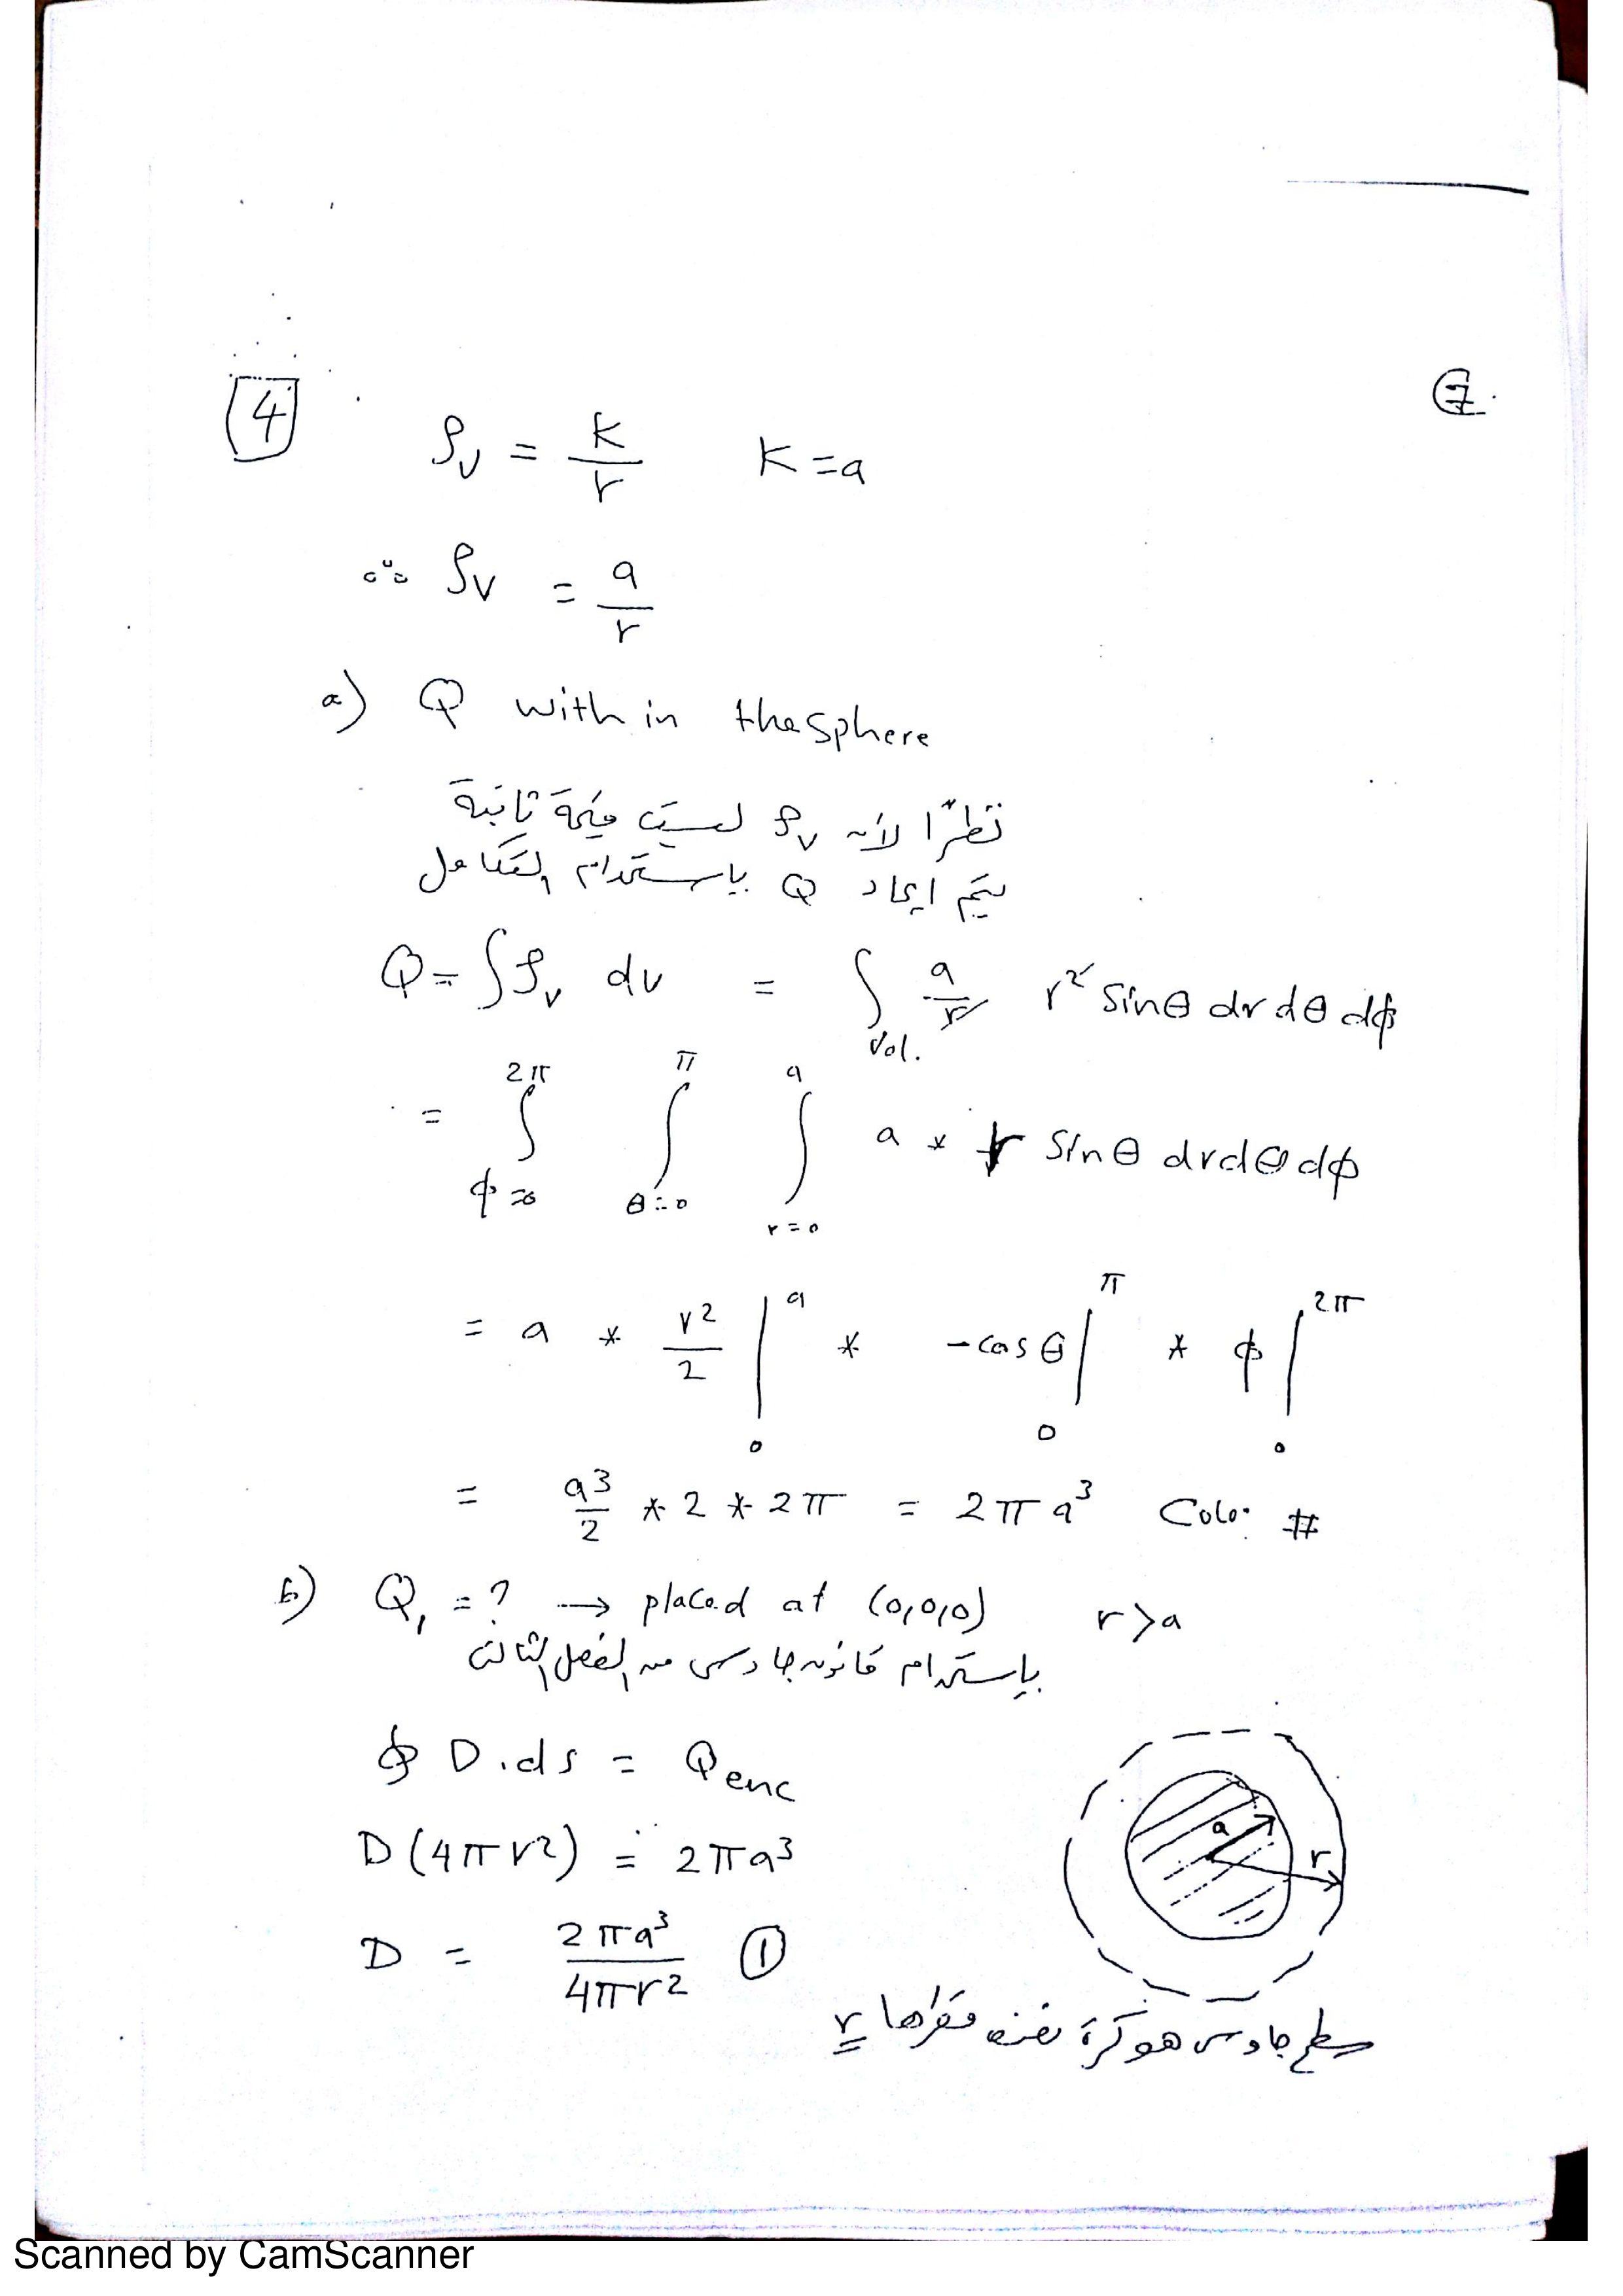 7
4
ρv = K/r K = a
∴ ρv = a/r
a) Q with in the sphere
نظرًا لأن ρv ليست قيمة ثابتة
يتم ايجاد Q باستخدام التكامل
Q = ∫ρv dv = ∫Vol. a/r r² Sinθ dr dθ dφ
= ∫φ=0^2π ∫θ=0^π ∫r=0^a a * r Sinθ dr dθ dφ
= a * r²/2 |0^a * -cosθ |0^π * φ |0^2π
= a³/2 * 2 * 2π = 2πa³ Colo. #
b) Q₁ = ? → placed at (0,0,0) r>a
باستخدام قانون جاوس من الفصل الثالث
∮ D.ds = Qenc
D(4πr²) = 2πa³
D = 2πa³/4πr² ①
a r
سطح جاوس هو كرة نصف قطرها r
Scanned by CamScanner